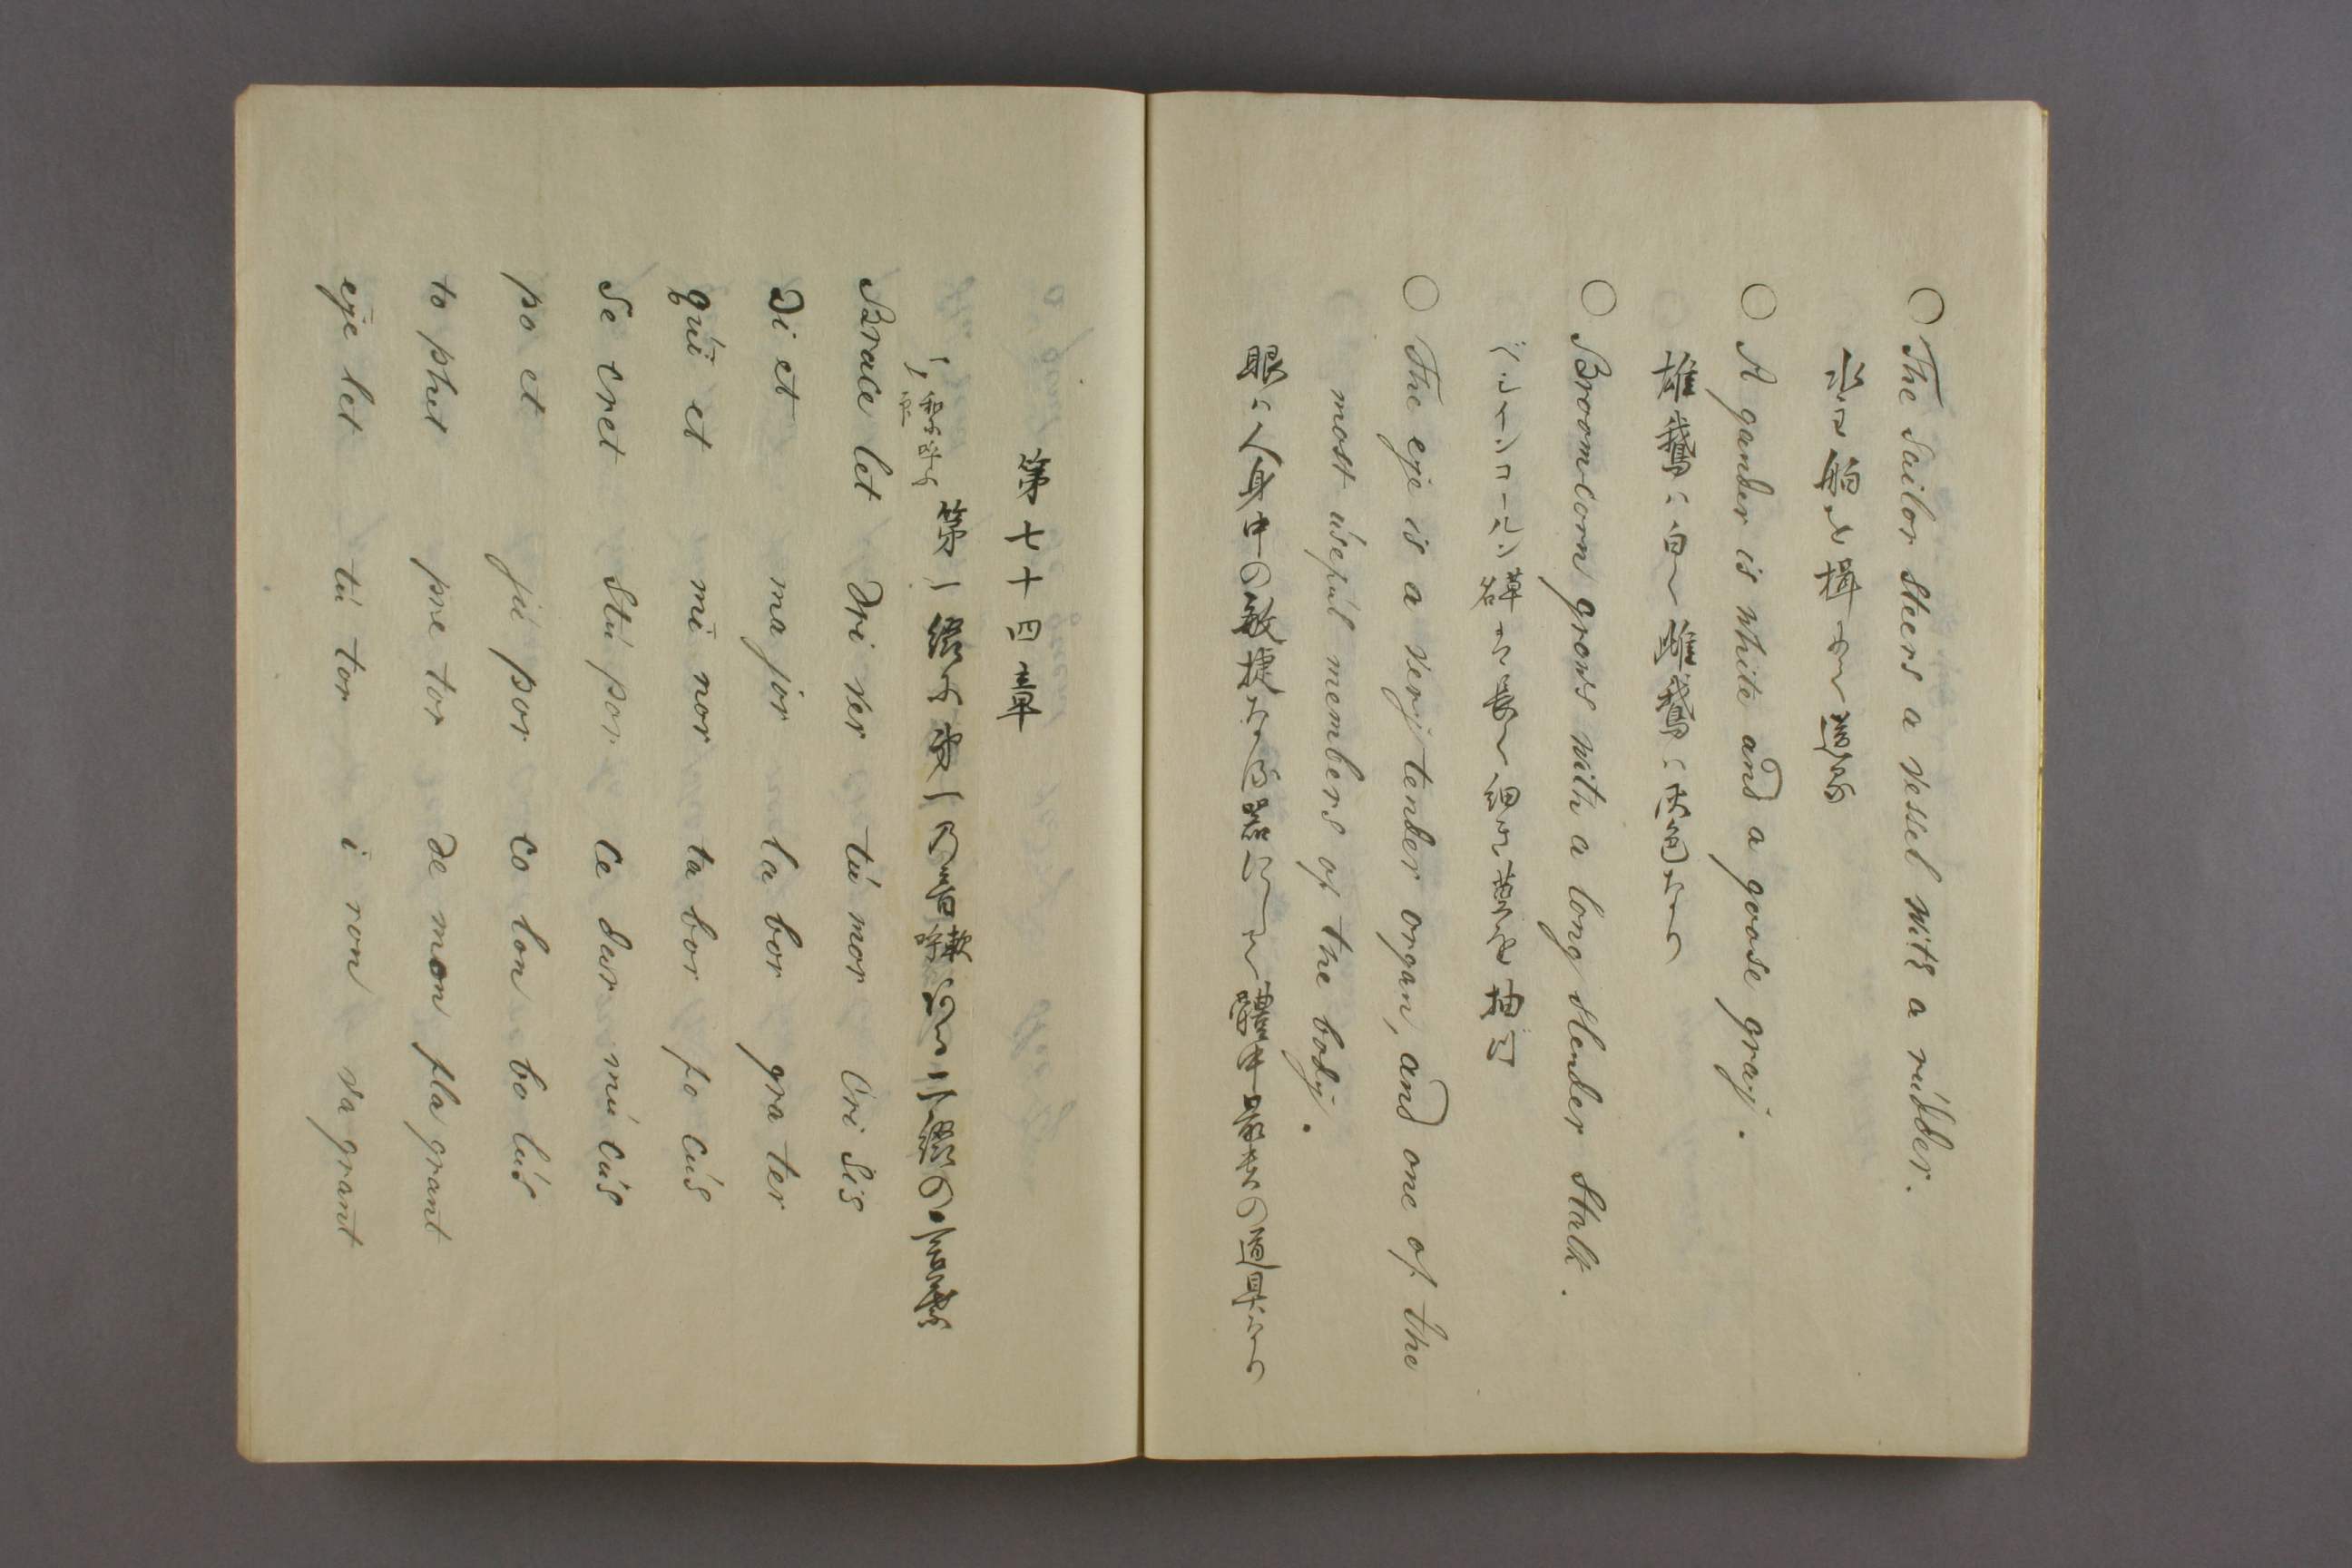 ○ The Sailor steers a vessel with a rudder.
水主舶を楫にて導る
○ A gander is white and a goose gray.
雄鵞ハ白く雌鵞ハ灰色なり
○ Broom-corn grows with a long slender Stalk.
コールン草名ハ長く細き莖を抽く
○ The eye is a very tender organ, and one of the
most useful members of the body.
眼ハ人身中の敏捷なる器にして體中最㐧の道具なり
第七十四章
第一綴に第一乃音軟第二綴の
Brace let dri ver tu mor Cri Sis
Di et ma jor la bor gra ter
qui et mi nor ta bor fo cus
Se cret Stu por Ce dar mu cus
po et ju por co lon bo lus
to phet pre tor de mon fla grant
eye let tu tor i ron va grant